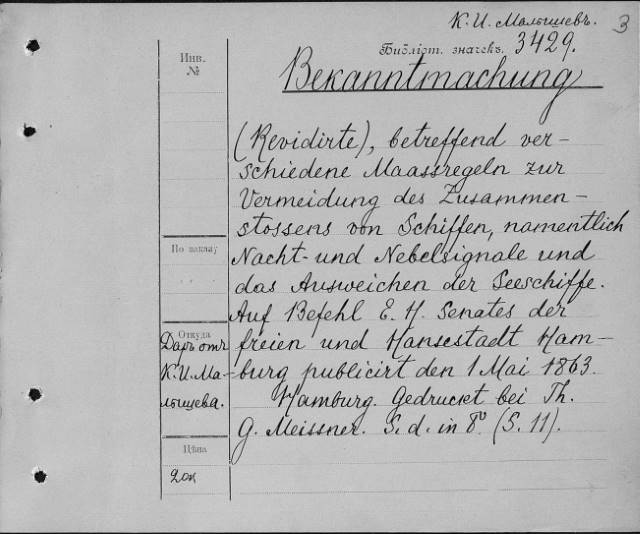 К. И. Малышевъ.
3
Библіот. значекъ. 3429.
Bekanntmachung
Инв.
№
(Revidirte), betreffend ver-
schiedene Maassregeln zur
Vermeidung des Zusammen-
stossens von Schiffen, namentlich
Nacht- und Nebelsignale und
das Ausweichen der Seeschiffe.
Auf Befehl E. H. Senates der
freien und Hansestadt Ham-
burg publicirt den 1 Mai 1863.
Hamburg. Gedruckt bei Th.
G. Meissner. S. d. in 8º (S. 11).
По заказу
Откуда
Даръ отъ
К. И. Ма-
лышева.
Цѣна
20к